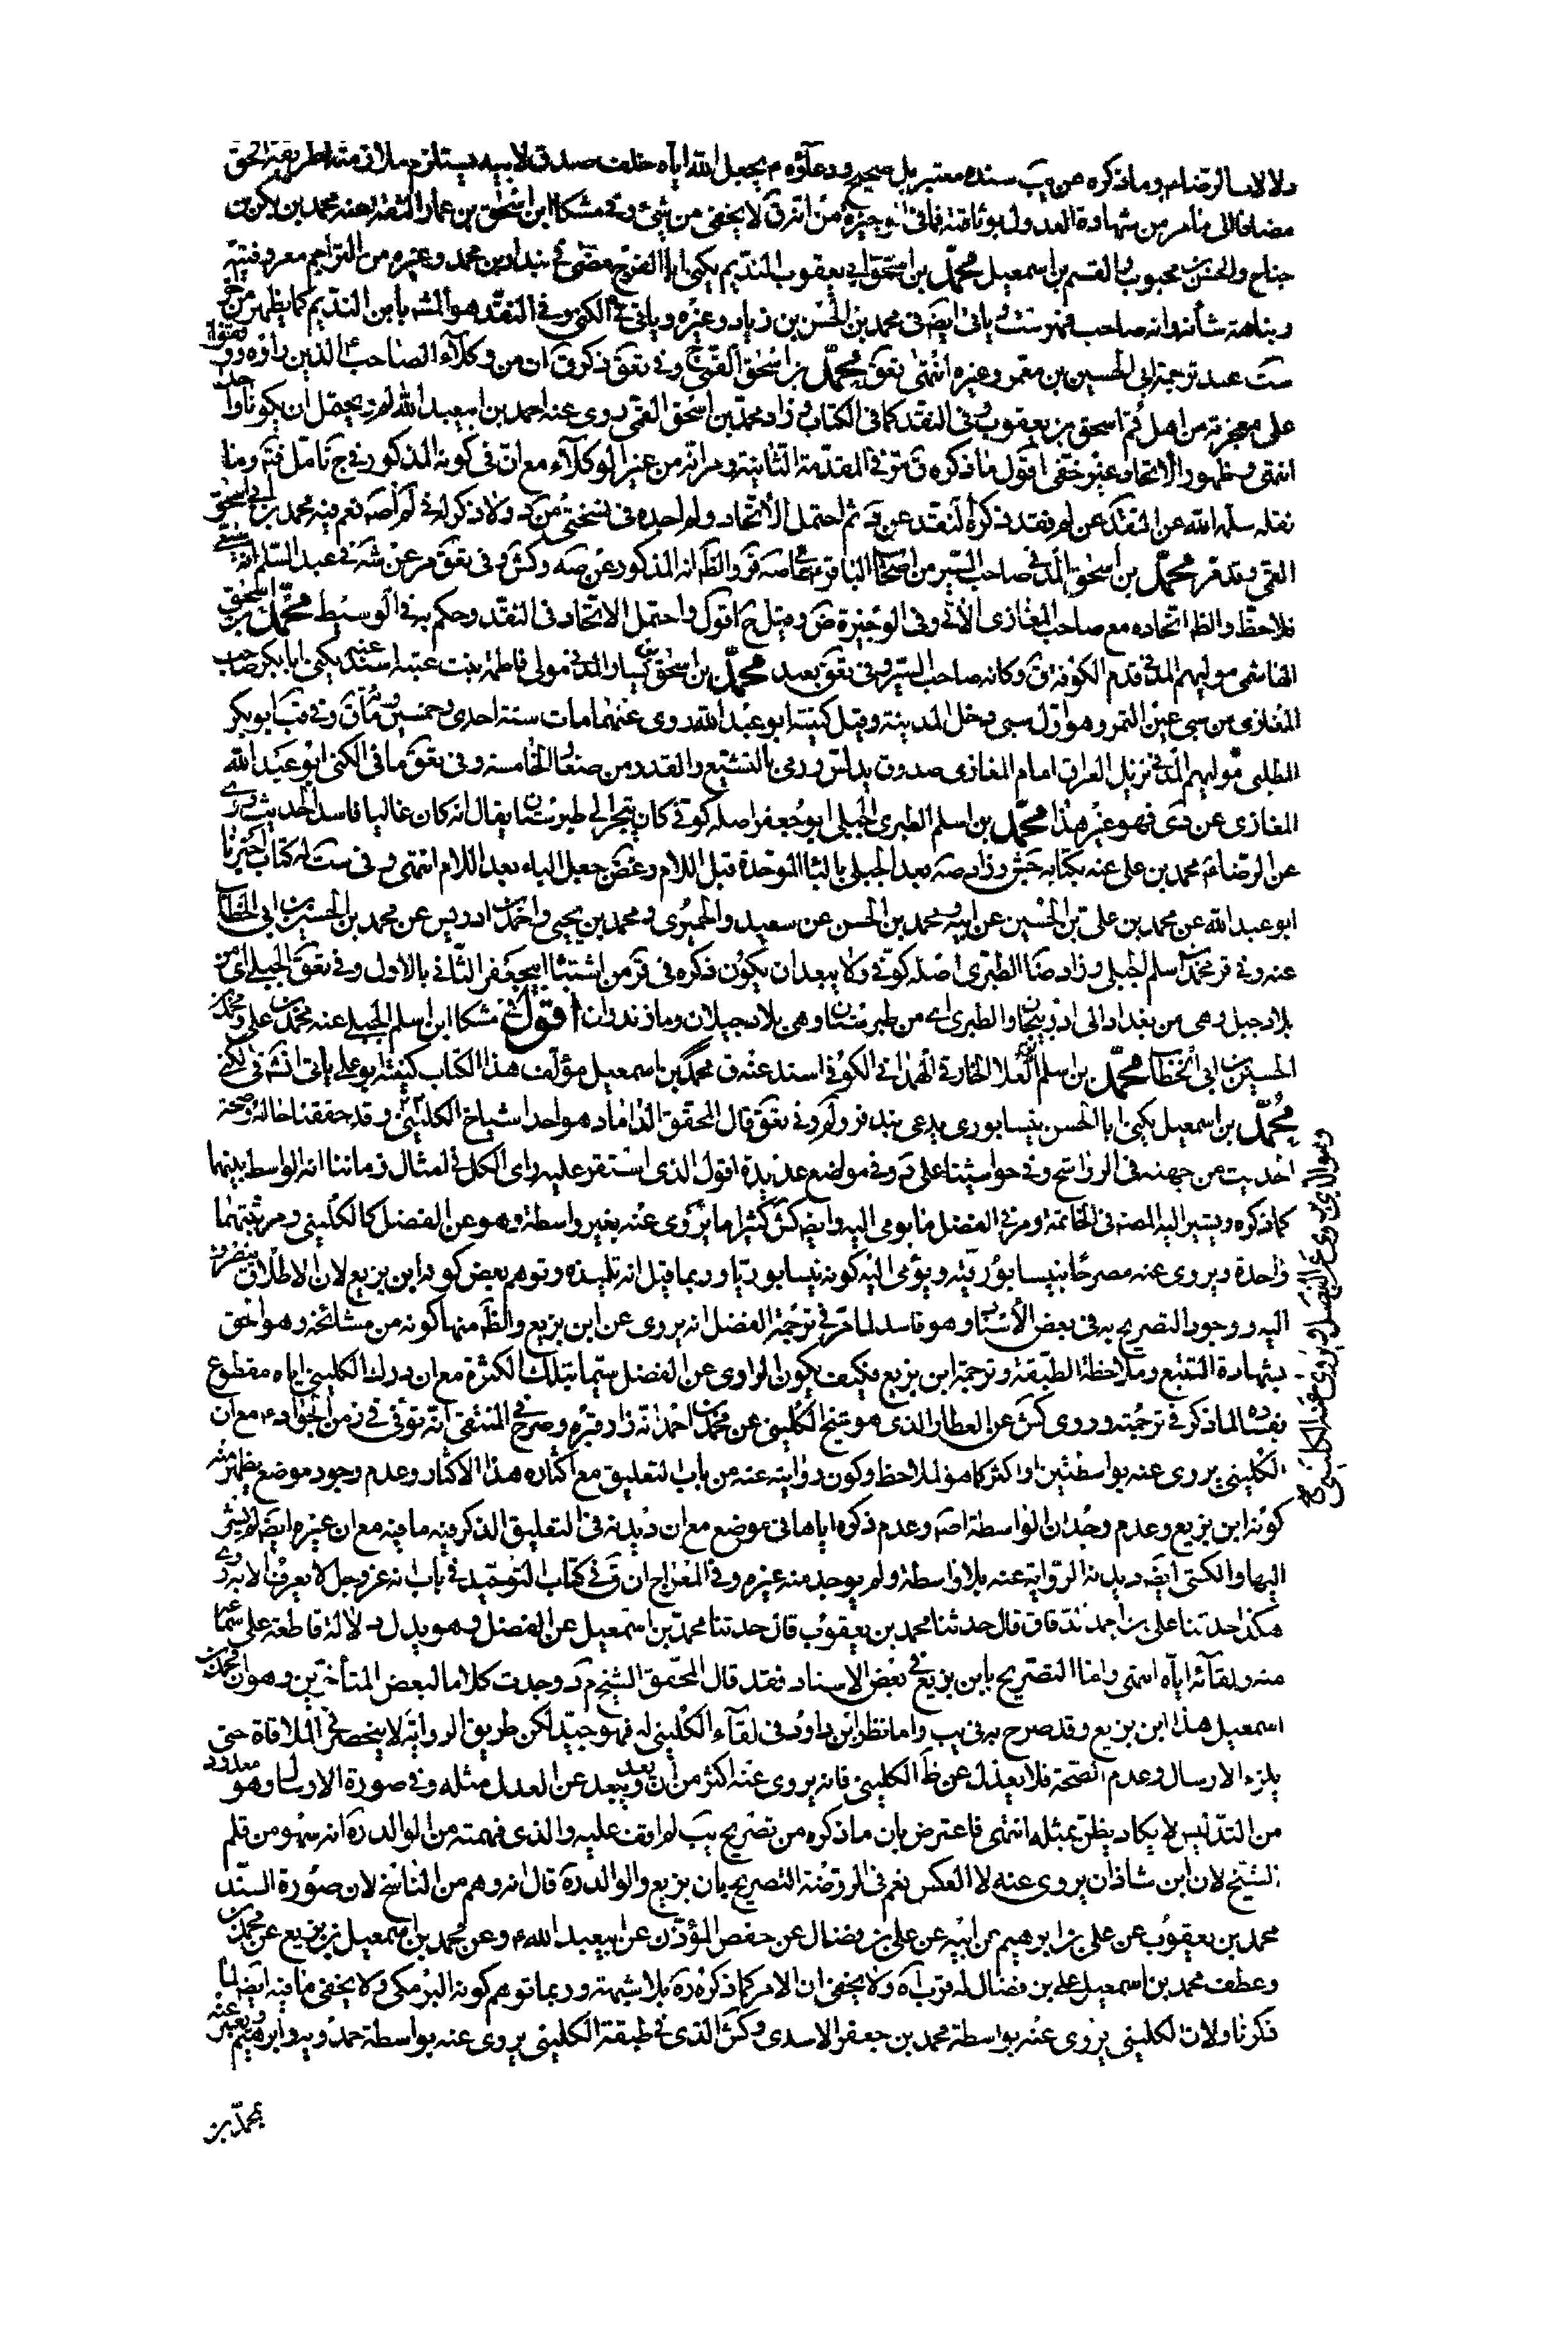 دلالات الرضا ع وما ذكره عن يب سنده معتبر بل صحيح ودعاؤه ع بجعل الله اياه خلف صدق لابيه يستلزم ملازمته لطريقة الحق
مضافا الى ما مر من شهادة العدول بوثاقته فما في الوجيزة من انه ق لا يخفى من شئ وفي مشكا ابن اسحق بن عمار الثقة عنه محمد بن بكر بن
جناح والحسن بن محبوب والقسم بن اسمعيل محمد بن اسحق ابي يعقوب النديم يكنى ابا الفرج مضى في بندار بن محمد وغيره من التراجم معروفيته
ونباهة شأنه وانه صاحب فهرست ياتى ايضا في محمد بن الحسن بن زياد وغيره وياتى في الكنى وفي النقد هو المشهور بابن النديم كما يظهر من
ست عند ترجمة ابي الحسين بن معمر وغيره انتهى تعق محمد بن اسحق القمي ج وفي تعق ذكر ق ان من وكلاء الصاحب ع الذين راوه ووقفوا
على معجزته من اهل قم اسحق بن يعقوب وفي النقد كما في الكتاب وزاد محمد بن اسحق القمي روى عنه احمد بن ابيعبد الله لم يحتمل ان يكونا واحدا
انتهى وظهور الاتحاد غير خفى اقول ما ذكره ق مر في المقدمة الثانية ومر انه من غير الوكلاء مع ان في كونه المذكور في ج تامل فت وما
نقله سلمه الله عن النقد عن لم فقد ذكره النقد عن د ثم احتمل الاتحاد ولم اجده في نسختي من د ولا ذكر له في لم اصه نعم فيه محمد بن ابي اسحق
القمي وقد مر محمد بن اسحق المدني صاحب السير من اصحاب الباقر ع عامي صه قر والظ انه المذكور عن صه وكش وفي تعق مر عن شه في عبد السلم انه شيعي
فلاحظ والظ اتحاده مع صاحب المغازى الاتي وفي الوجيزة ض وقيل ح اقول واحتمل الاتحاد في النقد وحكم به في الوسيط محمد بن اسحق
الهاشمي موليهم المدني قدم الكوفة ق وكانه صاحب السير وفي تعق بعيد محمد بن اسحق بن يسار المدني مولى فاطمة بنت عتبة اسند عنه يكنى ابا بكر صاحب
المغازى من سبي عين التمر وهو اول سبي دخل المدينة وقيل كنيته ابو عبد الله روى عنهما مات سنة احدى وخمسين ومائة ق وفي قب ابو بكر
المطلبي موليهم المدني نزيل العراق امام المغازى صدوق يدلس ورمى بالتشيع والقدر من صغار الخامسة وفي تعق ما في الكنى ابو عبد الله
المغازى عن دى فهو غير هذا محمد بن اسلم الطبرى الجبلي ابو جعفر اصله كوفي كان يتجر الى طبرستان يقال انه كان غاليا فاسد الحديث روى
عن الرضا ع محمد بن علي عنه بكتابه جش وزاد صه بعد الجبلي بالباء الموحدة قبل اللام وغض جعل الياء بعد اللام انتهى وفي ست له كتاب اخبرنا
ابو عبد الله عن محمد بن علي بن الحسين عن ابيه ومحمد بن الحسن عن سعيد والحميرى ومحمد بن يحيى واحمد بن ادريس عن محمد بن الحسين بن ابي الخطاب
عنه وفي قر محمد بن اسلم الجبلي وزاد ضا الطبرى اصله كوفي ولا يبعد ان يكون ذكره في قر من اشتباه ابيجعفر الثاني بالاول وفي تعق الجبلي اي من
بلاد جبل وهي من بغداد الى اذربيجان والطبرى اى من طبرستان وهي بلاد جيلان ومازندران اقول في مشكا ابن اسلم الجبلي عنه محمد بن علي ومحمد بن
الحسين بن ابي الخطاب محمد بن اسلم بن العلا الخارقي الهمداني الكوفي اسند عنه ق محمد بن اسمعيل مؤلف هذا الكتاب كنيته ابو علي ياتي انش في الكنى
محمد بن اسمعيل يكنى ابا الحسن نيسابورى يدعى بندفر ولم وفي تعق قال المحقق الداماد هو احد اشياخ الكليني وقد حققنا حاله وصحة
الحديث من جهته في الرواشح وفي حواشينا على د وفي مواضع عديدة اقول الذى استقر عليه راى الكل في امثال زماننا انه الواسطة بينهما
كما ذكره ويشير اليه المصه في الخاتمة ومر في الفضل ما يومى اليه وايضا كش كثيرا ما يروى عنه بغير واسطة وهو عن الفضل كالكليني ومرتبتهما
واحدة ويروى عنه مصرحا بنيسابوريته ويؤمى اليه كونه نيسابوريا وربما قيل انه تلميذه وتوهم بعض كونه ابن بزيع لان الاطلاق ينصرف
اليه ووجود التصريح به في بعض الاسناد وهو فاسد لما مر في ترجمة الفضل انه يروى عن ابن بزيع والظ منها كونه من مشائخه وهو الحق
بشهادة التتبع وملاحظة الطبقة وترجمة ابن بزيع فكيف يكون الراوى عن الفضل سيما بتلك الكثرة مع ان درك الكليني اياه مقطوع
بفساده لما ذكر في ترجمته وروى كش عن العطار الذى هو شيخ الكليني عن محمد بن احمد انه زار قبره وصرح في المنتقى انه توفى في زمن الجواد ع مع ان
الكليني يروى عنه بواسطتين او اكثر كما هو الملاحظ وكون روايته عنه من باب التعليق مع اكثاره هذا الاكثار وعدم وجود موضع يظهر منه
كونه ابن بزيع وعدم وجدان الواسطة اصه وعدم ذكره اياها في موضع مع ان ديدنه في التعليق الذكر فيه ما فيه مع ان غيره ايضا لم يشر
اليها والكشي ايضا ديدنه الرواية عنه بلا واسطة ولم يوجد منه غيره وفي المعراج ان ق في كتاب التوحيد في باب انه عز وجل لا يعرف الا به روى
هكذا حدثنا علي بن احمد الدقاق قال حدثنا محمد بن يعقوب قال حدثنا محمد بن اسمعيل عن الفضل وهو يدل دلالة قاطعة على سماعه
منه ولقائه اياه انتهى واما التصريح بابن بزيع في بعض الاسناد فقد قال المحقق الشيخ م د وجدت كلاما لبعض المتأخرين وهو ان محمد بن
اسمعيل هذا ابن بزيع وقد صرح به في يب واما نظر ابن داود في لقاء الكليني له فهو جيد لكن طريق الرواية لا ينحصر في الملاقاة حتى
يلزم الارسال وعدم الصحة فلا يعدل عن ظ الكليني فانه يروى عنه اكثر من ان يعد ويبعد عن العدل مثله وفي صورة الارسال وهو معدود
من التدليس لا يكاد يظن بمثله انتهى فاعترض بان ما ذكره من تصريح يب لم اقف عليه والذى فهمته من الوالد ره انه سهو من قلم
الشيخ لان ابن شاذان يروى عنه لا العكس نعم في الروضة التصريح بابن بزيع والوالد ره قال انه وهم من الناسخ لان صورة السند
محمد بن يعقوب عن علي بن ابرهيم عن ابيه عن علي بن فضال عن حفص المؤذن عن ابيعبد الله ع وعن محمد بن اسمعيل بن بزيع عن محمد بن
وعطف محمد بن اسمعيل على بن فضال له قرب اه ولا يخفى ان الامر كما ذكره ره بلا شبهة وربما توهم كونه البرمكي ولا يخفى ما فيه ايضا لما
ذكرنا ولان الكليني يروى عنه بواسطة محمد بن جعفر الاسدى وكش الذى في طبقة الكليني يروى عنه بواسطة حمدويه وابرهيم وبغير عنه
بمحمد بن
وهو الذى يروى عن الفضل بن ويروى عنه الكليني